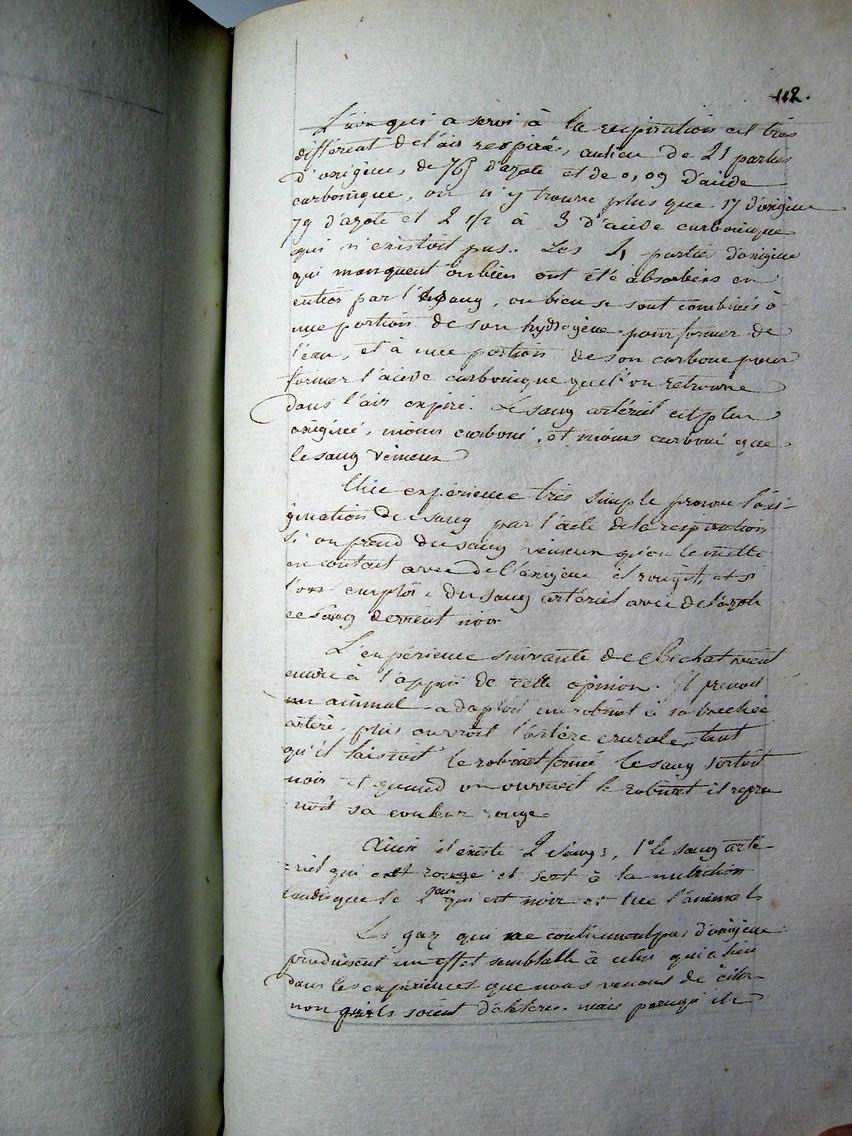 112.
L'air qui a servi à la respiration est très
différent de l'air respiré, au lieu de 21 parties
d'oxigène, de 79 d'azote et de 0,09 d'acide
carbonique, on n'y trouve plus que 17 d'oxigène
79 d'azote et 2 1/2 à 3 d'acide carbonique
qui n'existoit pas. Les 4 parties d'oxigène
qui manquent ou bien ont été absorbées en
entier par le sang, ou bien se sont combinés à
une portion de son hydrogène pour former de
l'eau, et à une portion de son carbone pour
former l'acide carbonique que l'on retrouve
dans l'air expiré. Le sang artériel est plus
oxigéné, moins carboné, et moins carboné que
le sang veineux
Une expérience très simple prouve l'oxi-
génation de sang par l'acte de la respiration
si on prend du sang veineux qu'on le mette
en contact avec de l'oxigène il rougit, et si
l'on emploie du sang artériel avec de l'azote
ce sang devient noir
L'expérience suivante de Bichat vient
encore à l'appui de cette opinion. Il prenoit
un animal adaptoit un robinet à sa trachée
artère, puis ouvroit l'artère crurale, tant
qu'il laissoit le robinet fermé le sang sortoit
noir et quand on ouvroit le robinet il repre
noit sa couleur rouge.
Ainsi il existe 2 sangs, 1° le sang arté-
riel qui est rouge et sert à la nutrition
tandis que le 2 qui est noir et tue l'animal
Les gaz qui ne contiennent pas d'oxigène
produisent un effet semblable à celui qui a lieu
dans les expériences que nous venons de citer
non qu'ils soient délétères mais parce qu'ils